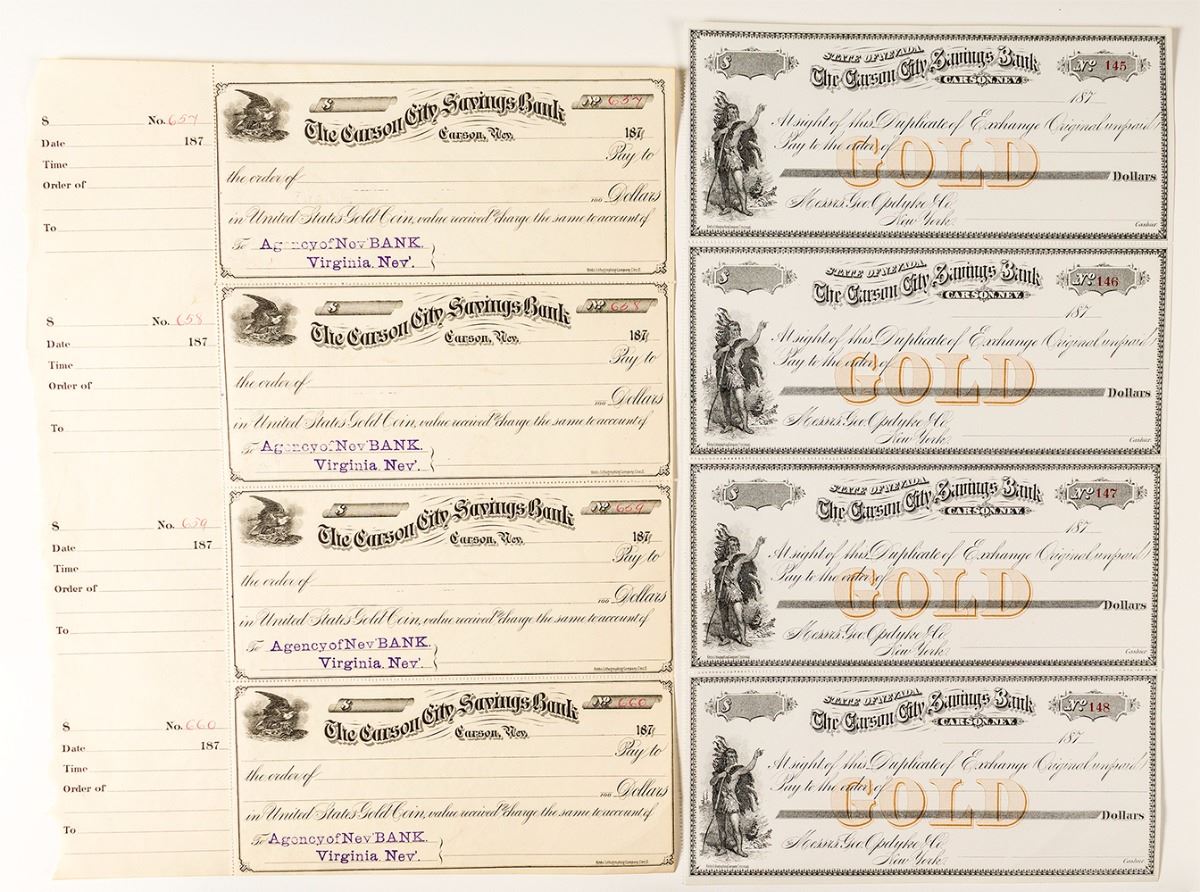 $ No. 657
Date 187
Time
Order of
To
$ The Carson City Savings Bank No 657
Carson, Nev. 187
Pay to
the order of
100 Dollars
in United States Gold Coin, value received & charge the same to account of
To Agency of Nev' BANK.
Virginia. Nev'.
$ No. 658
Date 187
Time
Order of
To
$ The Carson City Savings Bank No 658
Carson, Nev. 187
Pay to
the order of
100 Dollars
in United States Gold Coin, value received & charge the same to account of
To Agency of Nev' BANK.
Virginia. Nev'.
$ No. 659
Date 187
Time
Order of
To
$ The Carson City Savings Bank No 659
Carson, Nev. 187
Pay to
the order of
100 Dollars
in United States Gold Coin, value received & charge the same to account of
To Agency of Nev' BANK.
Virginia. Nev'.
$ No. 660
Date 187
Time
Order of
To
$ The Carson City Savings Bank No 660
Carson, Nev. 187
Pay to
the order of
100 Dollars
in United States Gold Coin, value received & charge the same to account of
To Agency of Nev' BANK.
Virginia. Nev'.
STATE OF NEVADA
$ The Carson City Savings Bank No 145
CARSON, NEV.
187
At sight of this Duplicate of Exchange (Original unpaid)
Pay to the order of
GOLD
Dollars
Messrs. Geo. Opdyke & Co.
New York. Cashier
STATE OF NEVADA
$ The Carson City Savings Bank No 146
CARSON, NEV.
187
At sight of this Duplicate of Exchange (Original unpaid)
Pay to the order of
GOLD
Dollars
Messrs. Geo. Opdyke & Co.
New York. Cashier
STATE OF NEVADA
$ The Carson City Savings Bank No 147
CARSON, NEV.
187
At sight of this Duplicate of Exchange (Original unpaid)
Pay to the order of
GOLD
Dollars
Messrs. Geo. Opdyke & Co.
New York. Cashier
STATE OF NEVADA
$ The Carson City Savings Bank No 148
CARSON, NEV.
187
At sight of this Duplicate of Exchange (Original unpaid)
Pay to the order of
GOLD
Dollars
Messrs. Geo. Opdyke & Co.
New York. Cashier